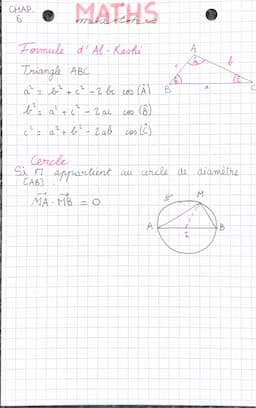 CHAP. 6
MATHS
Formule d'Al-Kashi
Triangle ABC
a² = b² + c² - 2bc cos (Â)
b² = a² + c² - 2ac cos (B̂)
c² = a² + b² - 2ab cos (Ĉ)
A
c
b
B
a
C
Cercle
Si M appartient au cercle de diamètre
[AB] :
MA · MB = 0
M
A
I
B